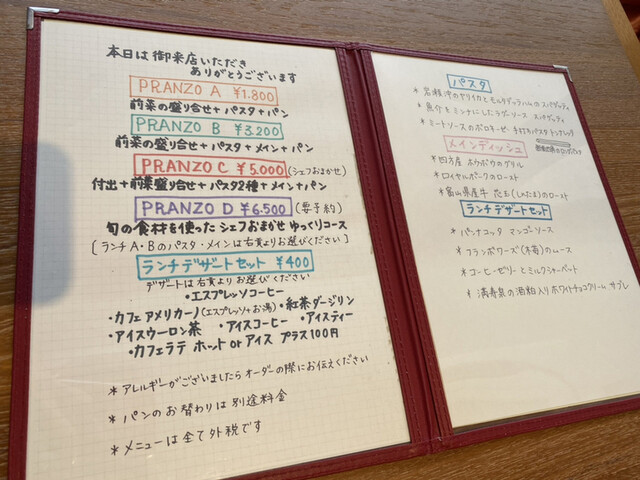 本日は御来店いただき
ありがとうございます
PRANZO A ¥1.800
前菜の盛り合せ+パスタ+パン
PRANZO B ¥3.200
前菜の盛り合せ+パスタ+メイン+パン
PRANZO C ¥5.000 (シェフおまかせ)
付出+前菜盛り合せ+パスタ2種+メイン+パン
PRANZO D ¥6.500 (要予約)
旬の食材を使ったシェフおまかせ ゆっくりコース
[ランチA・Bのパスタ・メインは右頁よりお選びください]
ランチデザートセット ¥400
デザートは右頁よりお選びください
・エスプレッソコーヒー
・カフェアメリカーノ(エスプレッソ+お湯) ・紅茶ダージリン
・アイスウーロン茶 ・アイスコーヒー ・アイスティー
・カフェラテ ホット or アイス プラス100円
* アレルギーがございましたらオーダーの際にお伝えください
* パンのお替わりは別途料金
* メニューは全て外税です
パスタ
* 岩瀬沖のヤリイカとモルタデッラハムのスパゲッティ
* 魚介をミンチにしたラグーソース スパゲッティ
* ミートソースのボロネーゼ 手打ちパスタ
メインディッシュ
* 四方産 ホウボウのグリル
* ロイヤルポークのロースト
* 富山県産牛 のロースト
ランチデザートセット
* パンナコッタ マンゴーソース
* フランボワーズ(木苺)のムース
* コーヒーゼリーとミルクシャーベット
* 満寿泉の酒粕入りホワイトチョコクリーム サブレ